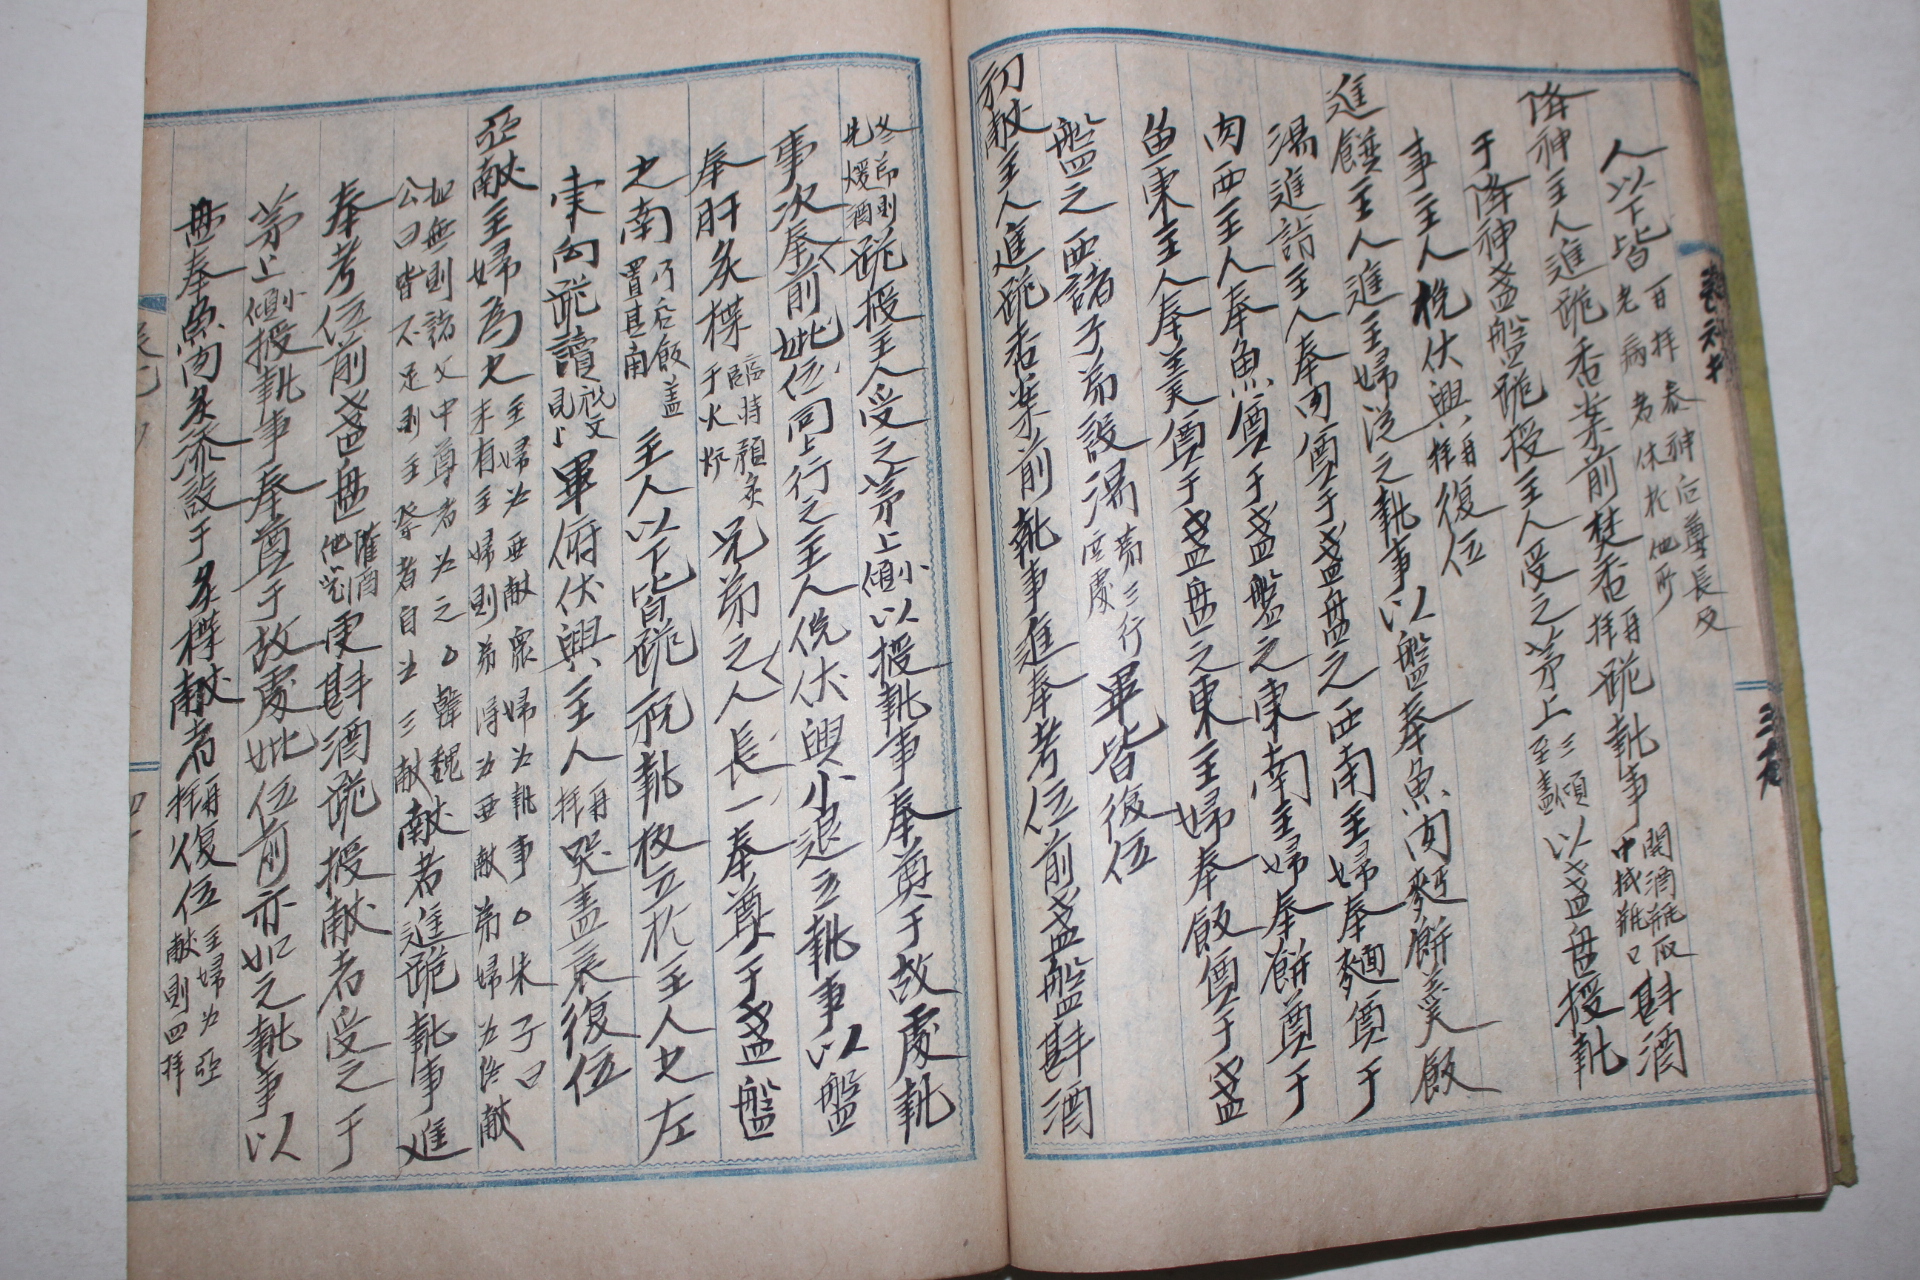 人以下皆再拜 參神 后尊長及老病者休於他所
降神主人進跪香案前焚香再拜跪執事開酒瓶取巾拭瓶口斟酒
于降神盞盤跪授主人受之茅上三傾至盡以盞盘授執
事主人俛伏興再拜復位
進饌主人進主婦從之執事以盤奉魚肉麪餅羹飯
湯進詣主人奉肉奠于盞盘之西南主婦奉麵奠于
肉西主人奉魚奠于盞盤之東南主婦奉餅奠于
魚東主人奉羹奠于盞盘之東主婦奉飯奠于盞
盤之西諸子弟設湯第三行空處畢皆復位
初獻主人進跪香案前執事進奉考位前盞盤斟酒
冬節則先煖酒跪授主人受之茅上小傾以授執事奉奠于故處執
事次奉前妣位同上行之主人俛伏興小退立執事以盤
奉肝炙楪臨時頖炙于火炉兄弟之人長一奉奠于盞盤
之南乃啓飯盖置其南主人以下皆跪祝執板立於主人之左
東向跪讀祝文見上畢俯伏興主人再拜哭盡哀復位
亞獻主婦為之主婦为亚献衆婦为執事○朱子曰未有主婦則弟得为亜献弟婦为終献
如無則諸父中尊者为之○韓魏公曰皆不足則主祭者自为三献献者進跪執事進
奉考位前盞盘斟酒跪授献者受之于
茅上小傾授執事奉奠于故處妣位前亦如之執事以
盘奉魚肉炙添設于炙楪献者再拜復位主婦为亞献則四拜